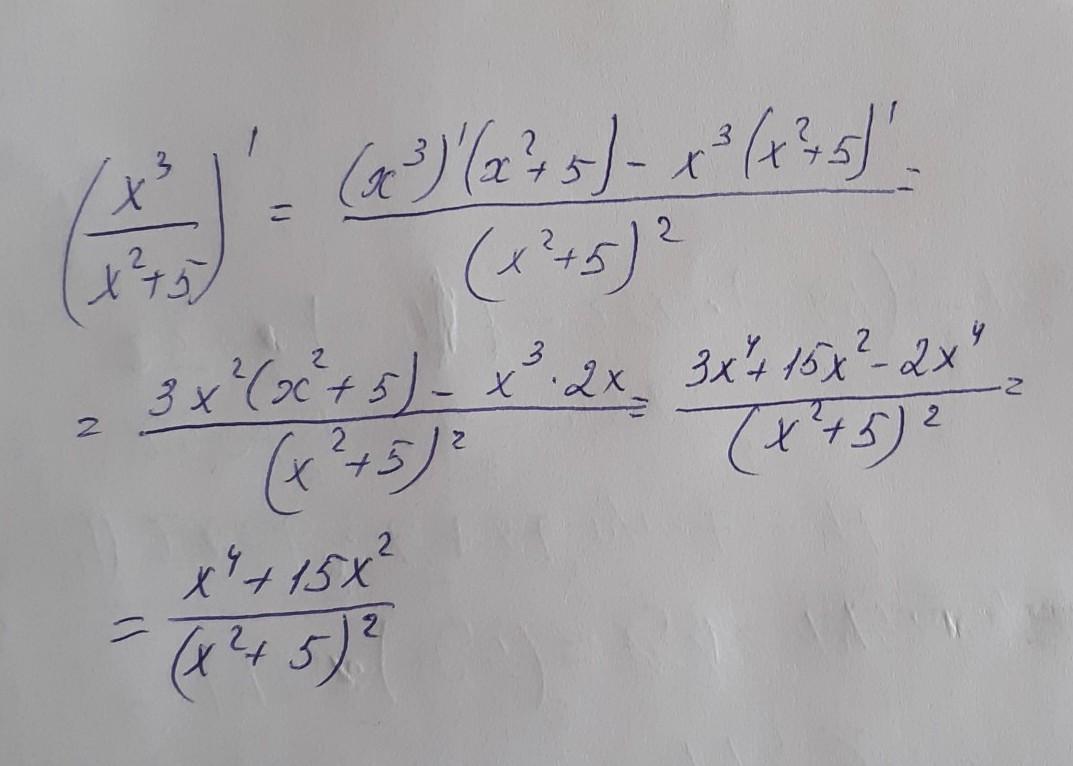 (x³/(x²+5))' = ((x³)'(x²+5) - x³(x²+5)')/(x²+5)² =
= (3x²(x²+5) - x³·2x)/(x²+5)² = (3x⁴+15x²-2x⁴)/(x²+5)² =
= (x⁴+15x²)/(x²+5)²